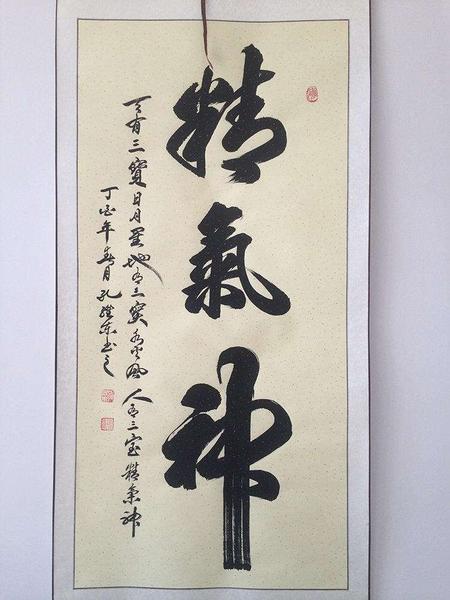 精氣神
天有三寶日月星地有三寶水火風人有三宝精氣神
丁酉年春月孔东书之